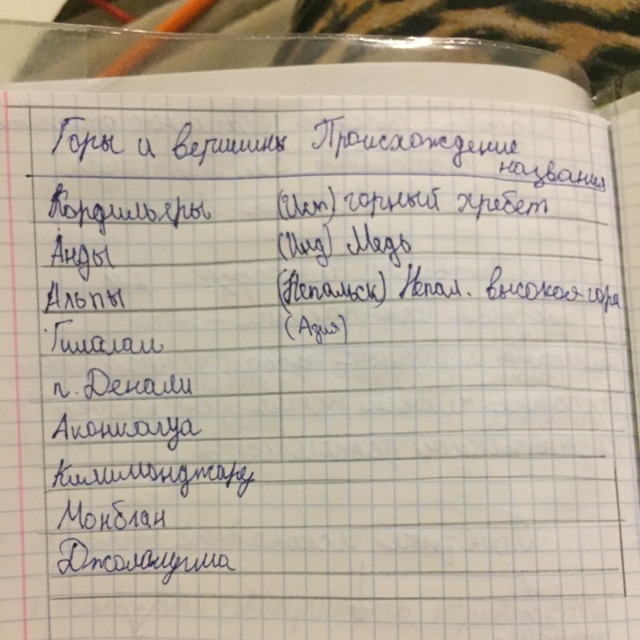 Горы и вершины Происхождение
названия
Кордильеры (Исп) горный хребет
Анды (Инд) Медь
Альпы высокая гора
Гималаи (Азия)
п. Денали
Аконкагуа
Килиманджаро
Монблан
Джомолунгма